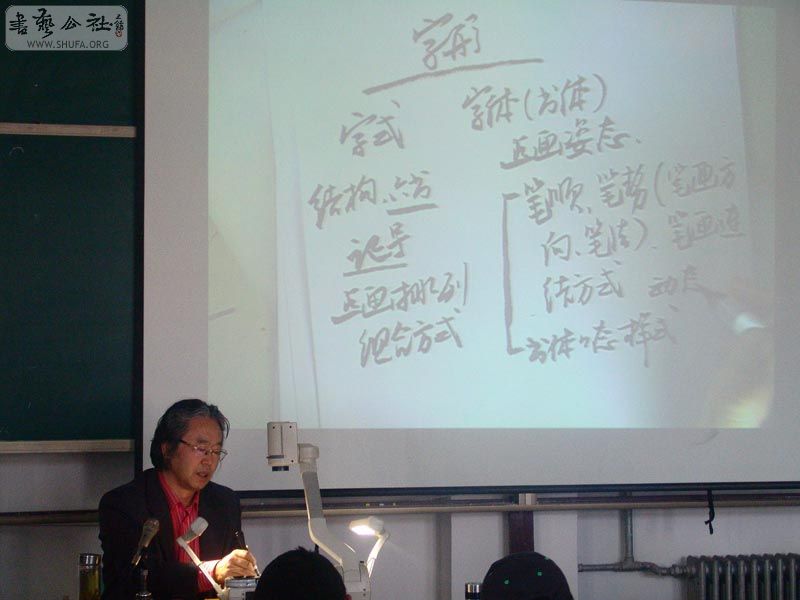 书艺公社
WWW.SHUFA.ORG
字形
字式
字体(书体)
点画姿态、
结构、六书
笔顺、笔势(笔画方
向、笔法)、笔画连
点画排列
结方式 动态
组合方式
书体 态样式